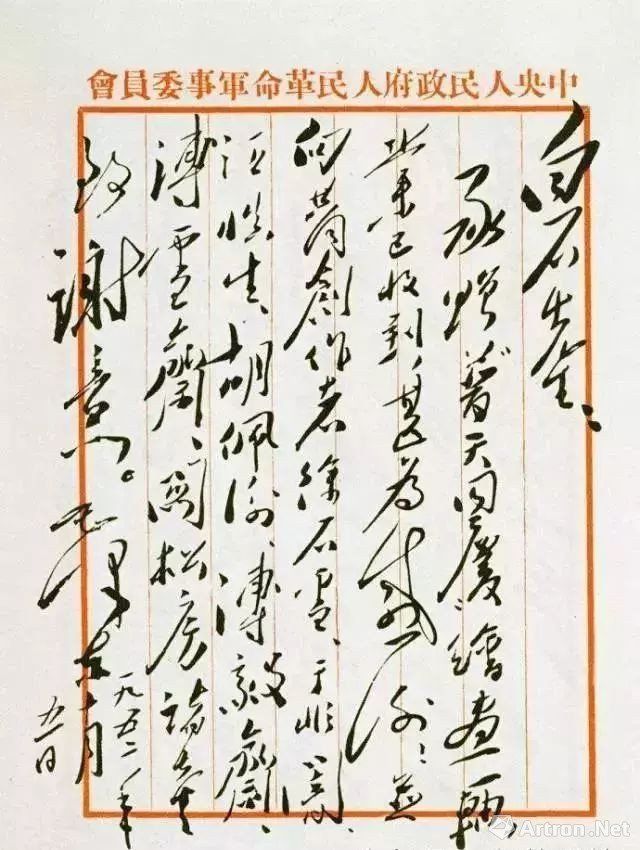 中央人民政府人民革命軍事委員會
白石先生:
承贈“普天同慶”繪畫一軸,
業已收到,甚為感謝!並
向共同創作者徐石雪、于非闇、
汪慎生、胡佩衡、溥毅齋、
溥雪齋、關松房諸先生
致謝意。毛澤東
一九五二年
十月
五日
Artron.Net